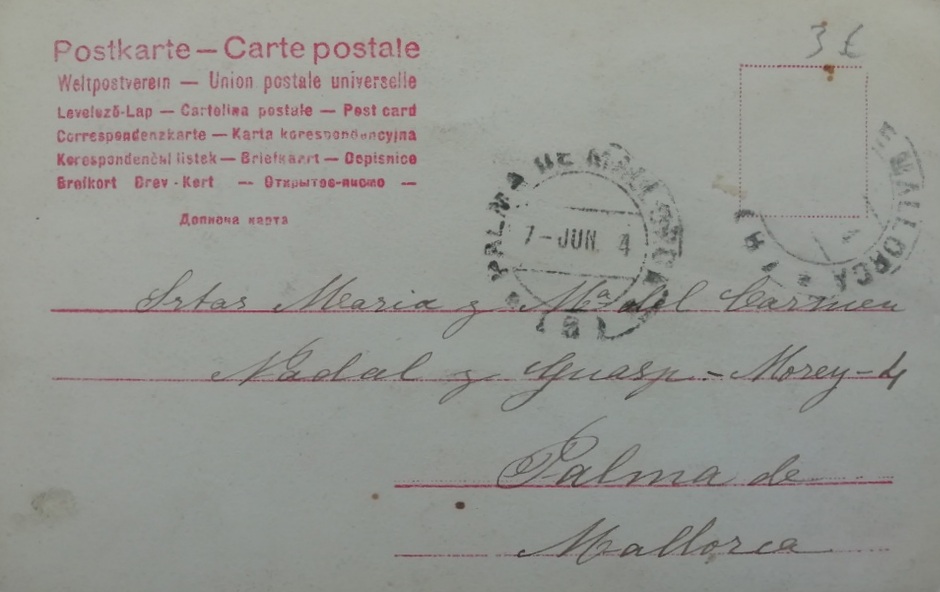 3 £
Postkarte — Carte postale
Weltpostverein — Union postale universelle
Levelező-Lap — Cartolina postale — Post card
Correspondenzkarte — Karta korespondencyjna
Korespondenční listek — Briefkaart — Dopisnice
Brefkort Brev-Kort — Открытое-письмо —
Допиона карта
PALMA DE MALLORCA
7 - JUN. 4
MALLORCA
Srtas Maria y Mª del Carmen
Nadal y Guasp - Morey - 4
Palma de
Mallorca